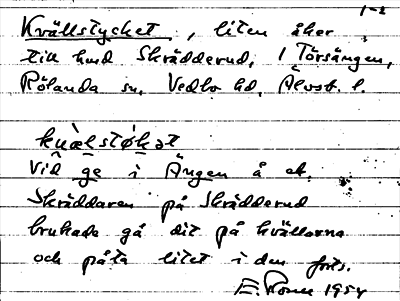 1-2
Kvällstycket, liten åker
till hmd Skrädderud, 1 Törsängen,
Rölanda sn, Vedbo hd, Älvsb. l.
kvæ̀lstø̂kət
Vid ge i Ängen å ab.
Skräddaren på Skrädderud
brukade gå dit på kvällarna
och påta litet i den forts.
1954